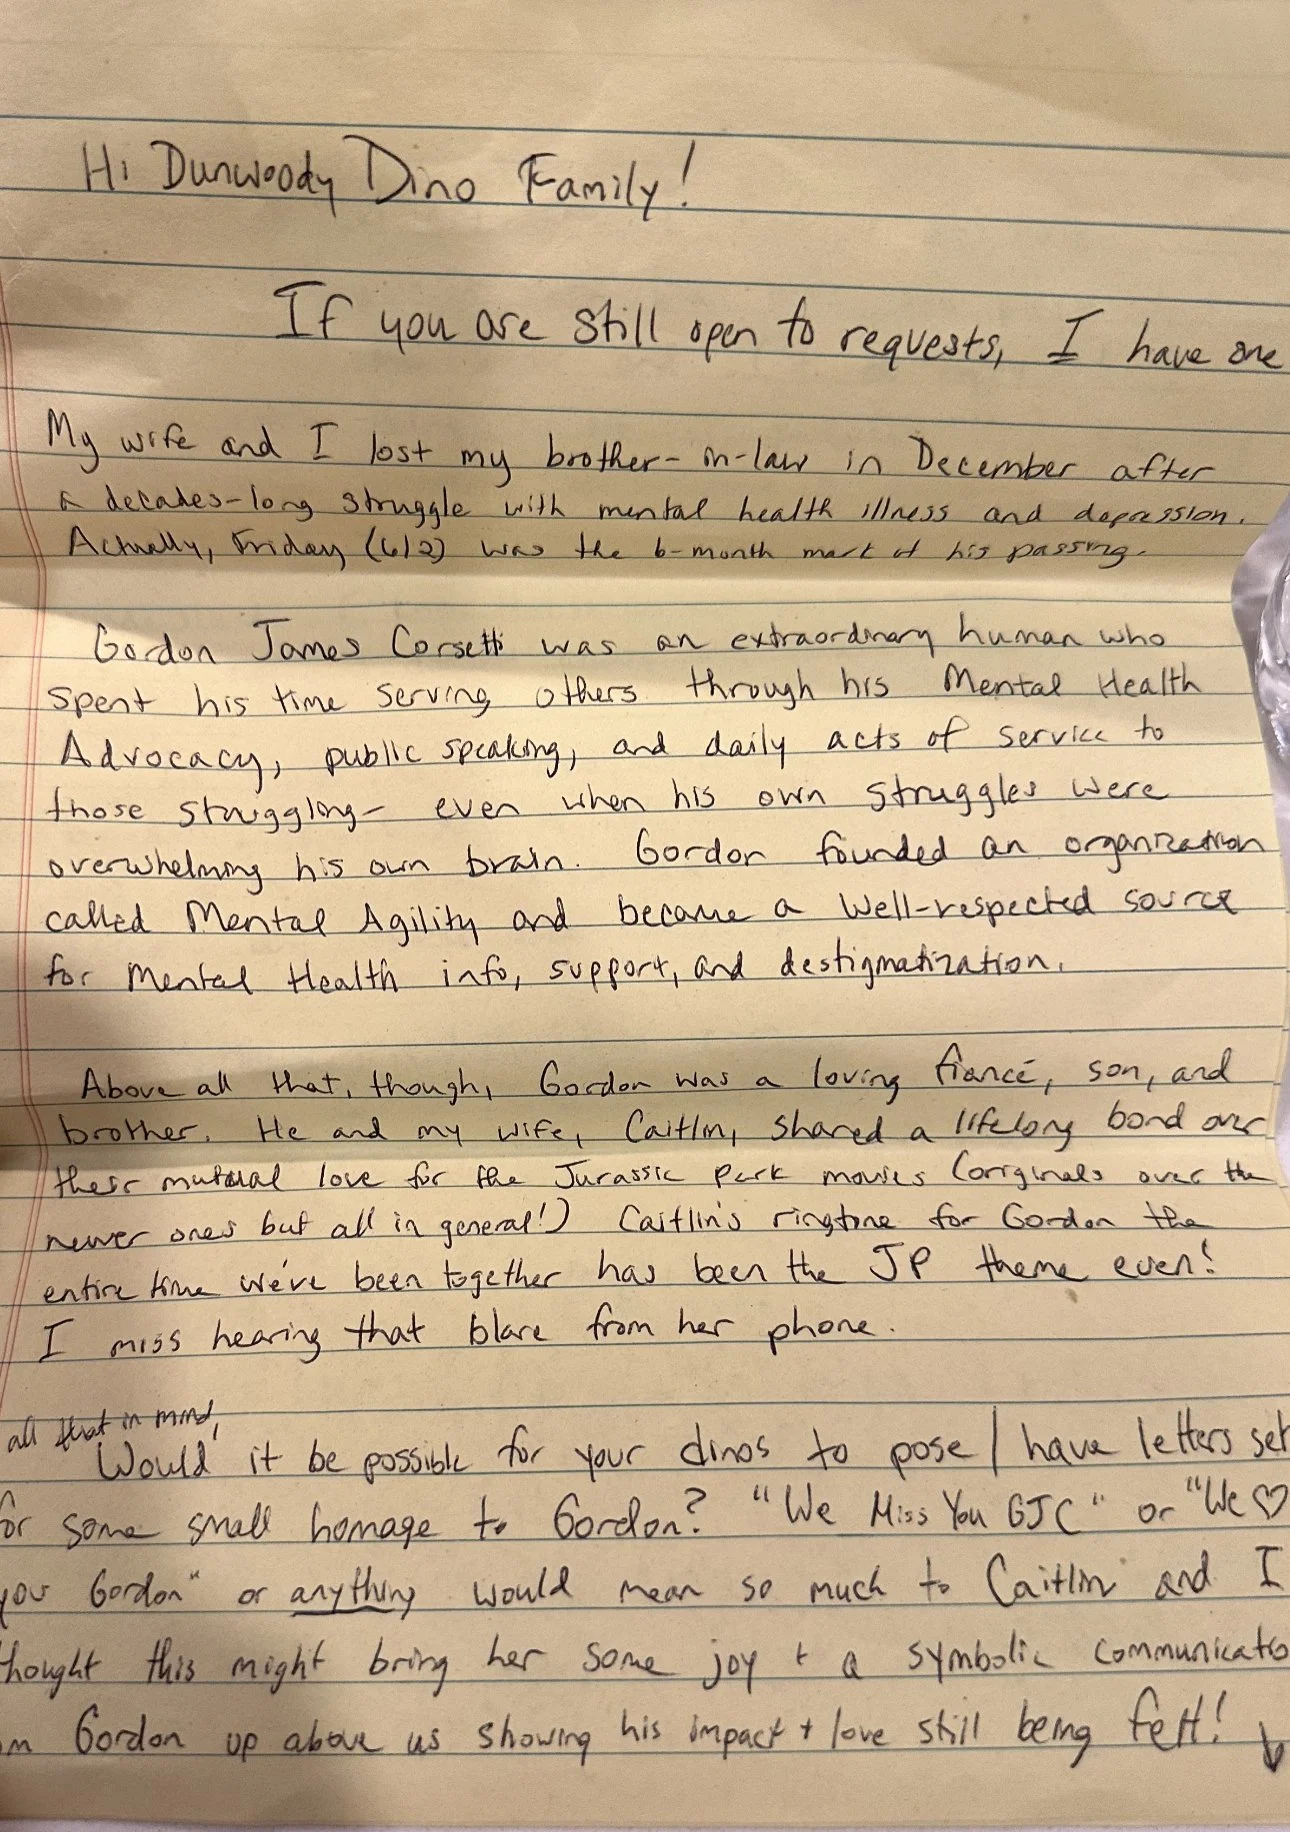 Hi Dunwoody Dino Family!
If you are still open to requests, I have one
My wife and I lost my brother-in-law in December after
a decades-long struggle with mental health illness and depression.
Actually, Friday (6/2) was the 6-month mark of his passing.
Gordon James Corsetti was an extraordinary human who
spent his time serving others through his Mental Health
Advocacy, public speaking, and daily acts of service to
those struggling- even when his own struggles were
overwhelming his own brain. Gordon founded an organization
called Mental Agility and became a well-respected source
for Mental Health info, support, and destigmatization.
Above all that, though, Gordon was a loving fiancé, son, and
brother. He and my wife, Caitlin, shared a lifelong bond over
their mutual love for the Jurassic Park movies (originals over the
newer ones but all in general!) Caitlin's ringtone for Gordon the
entire time we've been together has been the JP theme even!
I miss hearing that blare from her phone.
all that in mind,
Would it be possible for your dinos to pose/have letters set
for some small homage to Gordon? "We Miss You GJC" or "We ♡
you Gordon" or anything would mean so much to Caitlin and I
thought this might bring her some joy + a symbolic communicatio
om Gordon up above us showing his impact + love still being felt! ↓